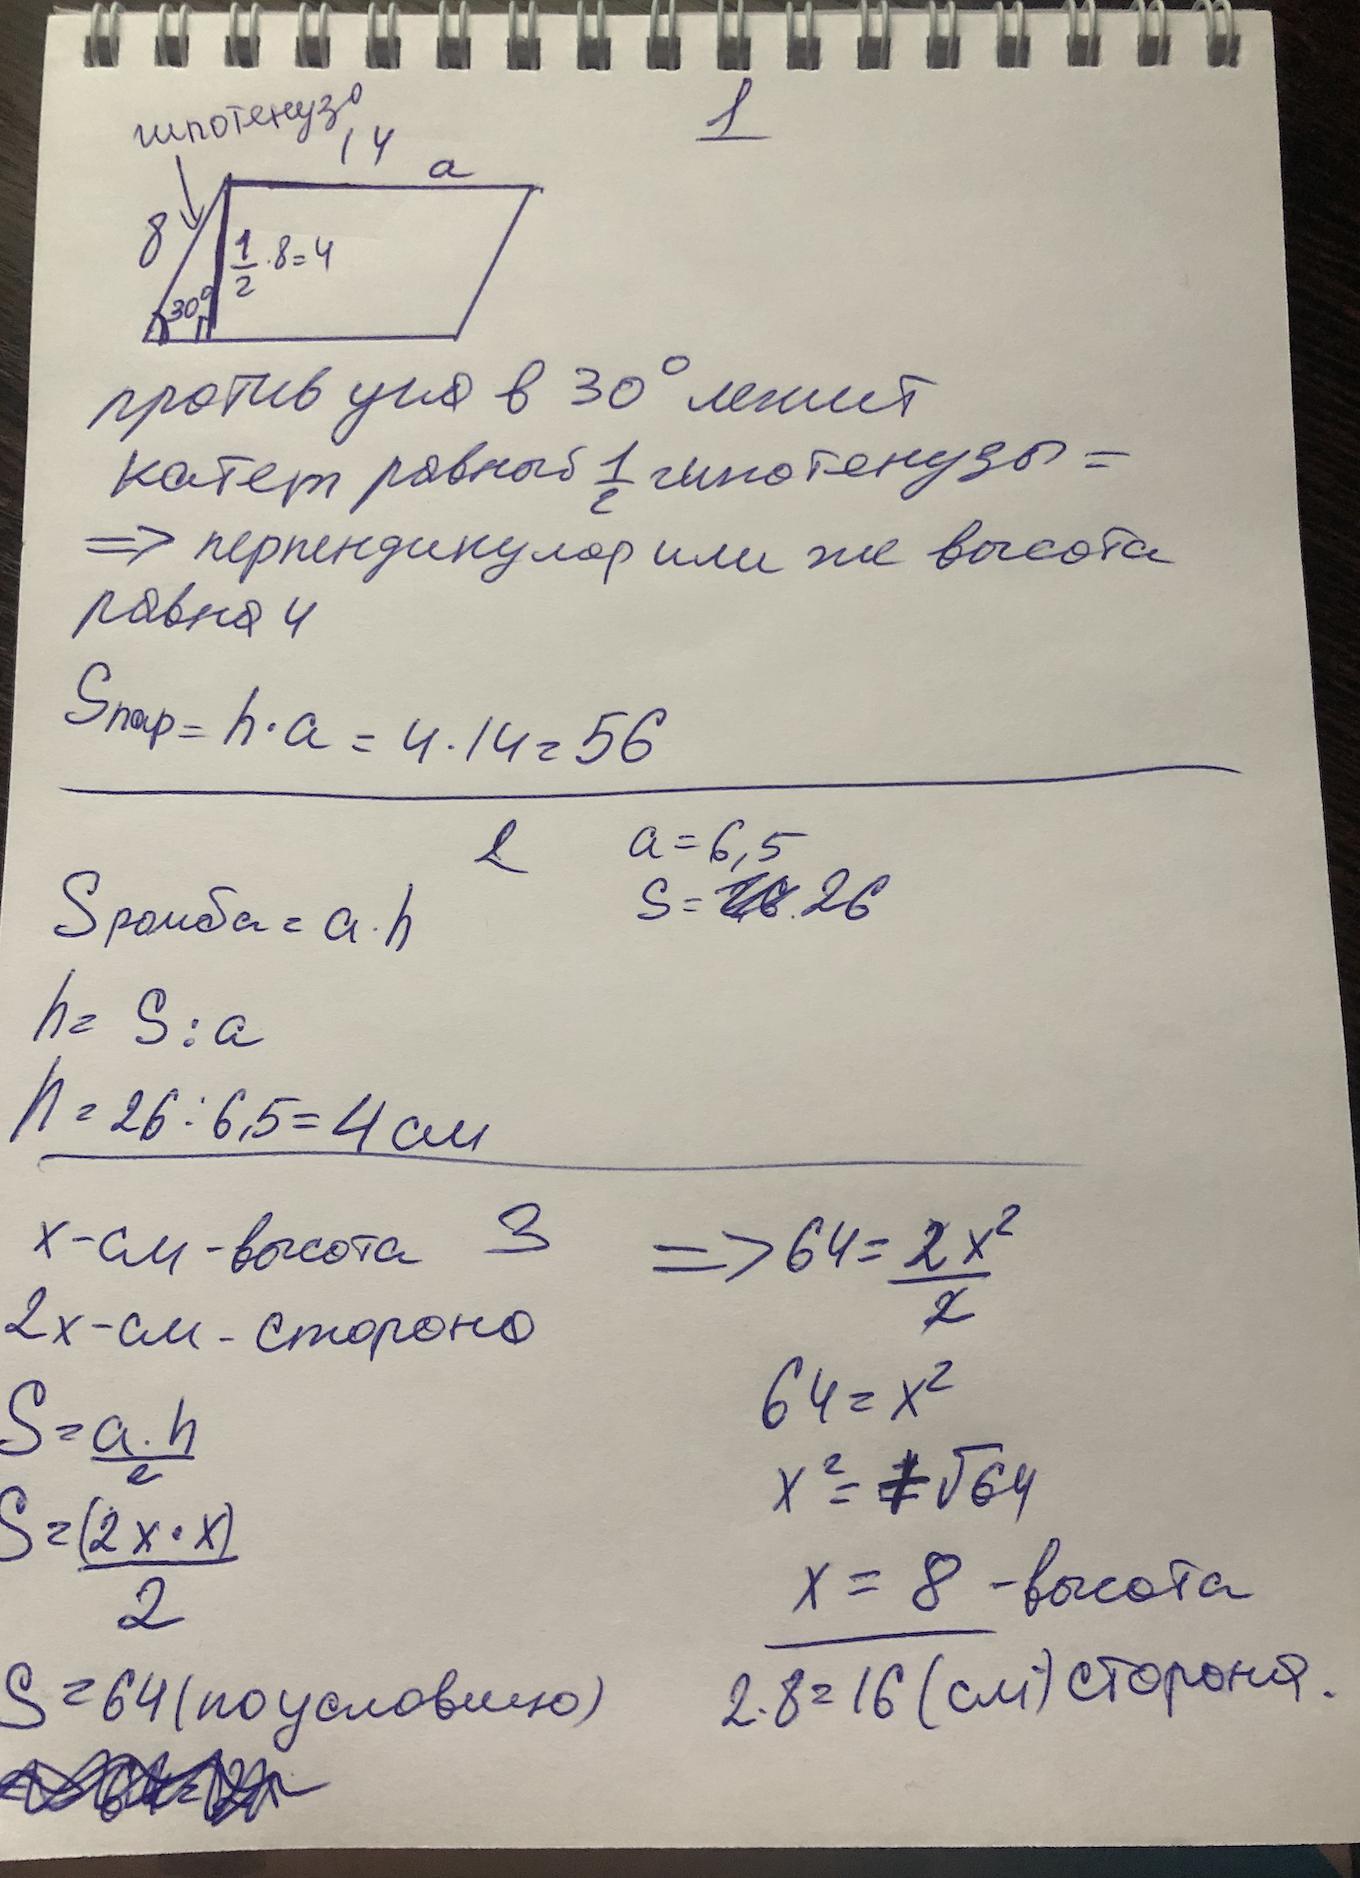 1
гипотенуза
14
a
8
1/2 · 8 = 4
30°
против угла в 30° лежит
катет равный 1/2 гипотенузы =
=> перпендикуляр или же высота
равна 4
Sпар = h · a = 4 · 14 = 56
2
a = 6,5
S = 26
Sромба = a · h
h = S : a
h = 26 : 6,5 = 4 см
3
x - см - высота
2x - см - сторона
S = a · h / 2
S = (2x · x) / 2
S = 64 (по условию)
=> 64 = 2x² / 2
64 = x²
x² = √64
x = 8 - высота
2 · 8 = 16 (см) сторона.